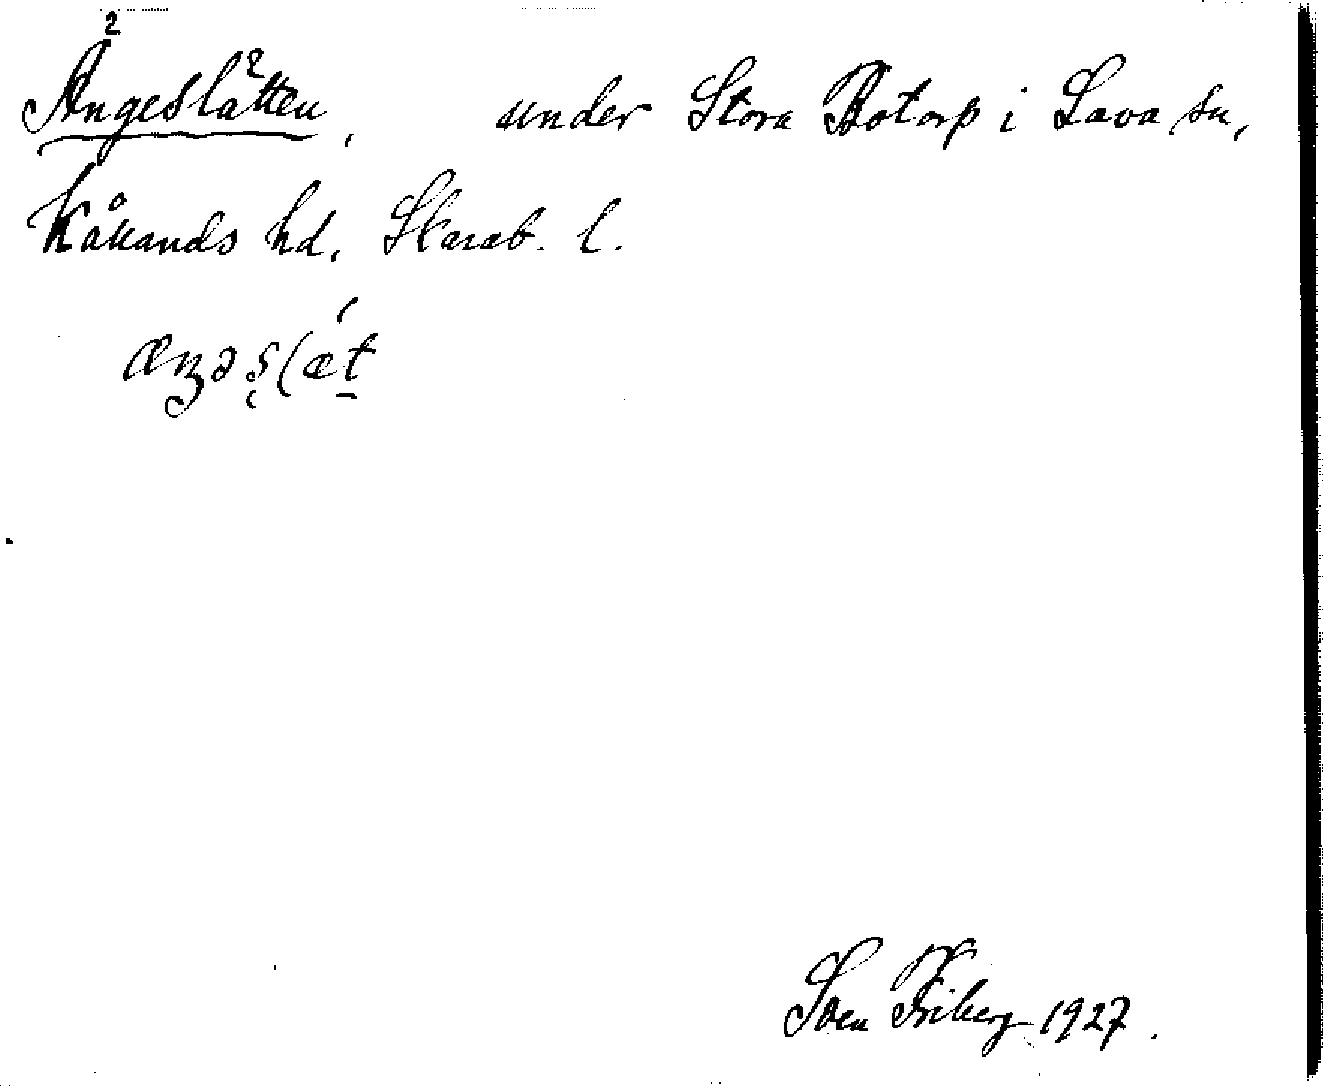 Ängeslätten, under Stora Botorp i Lava sn,
Kåkands hd. Skarab. l.
æŋəslǽt
Sven Friberg 1927.